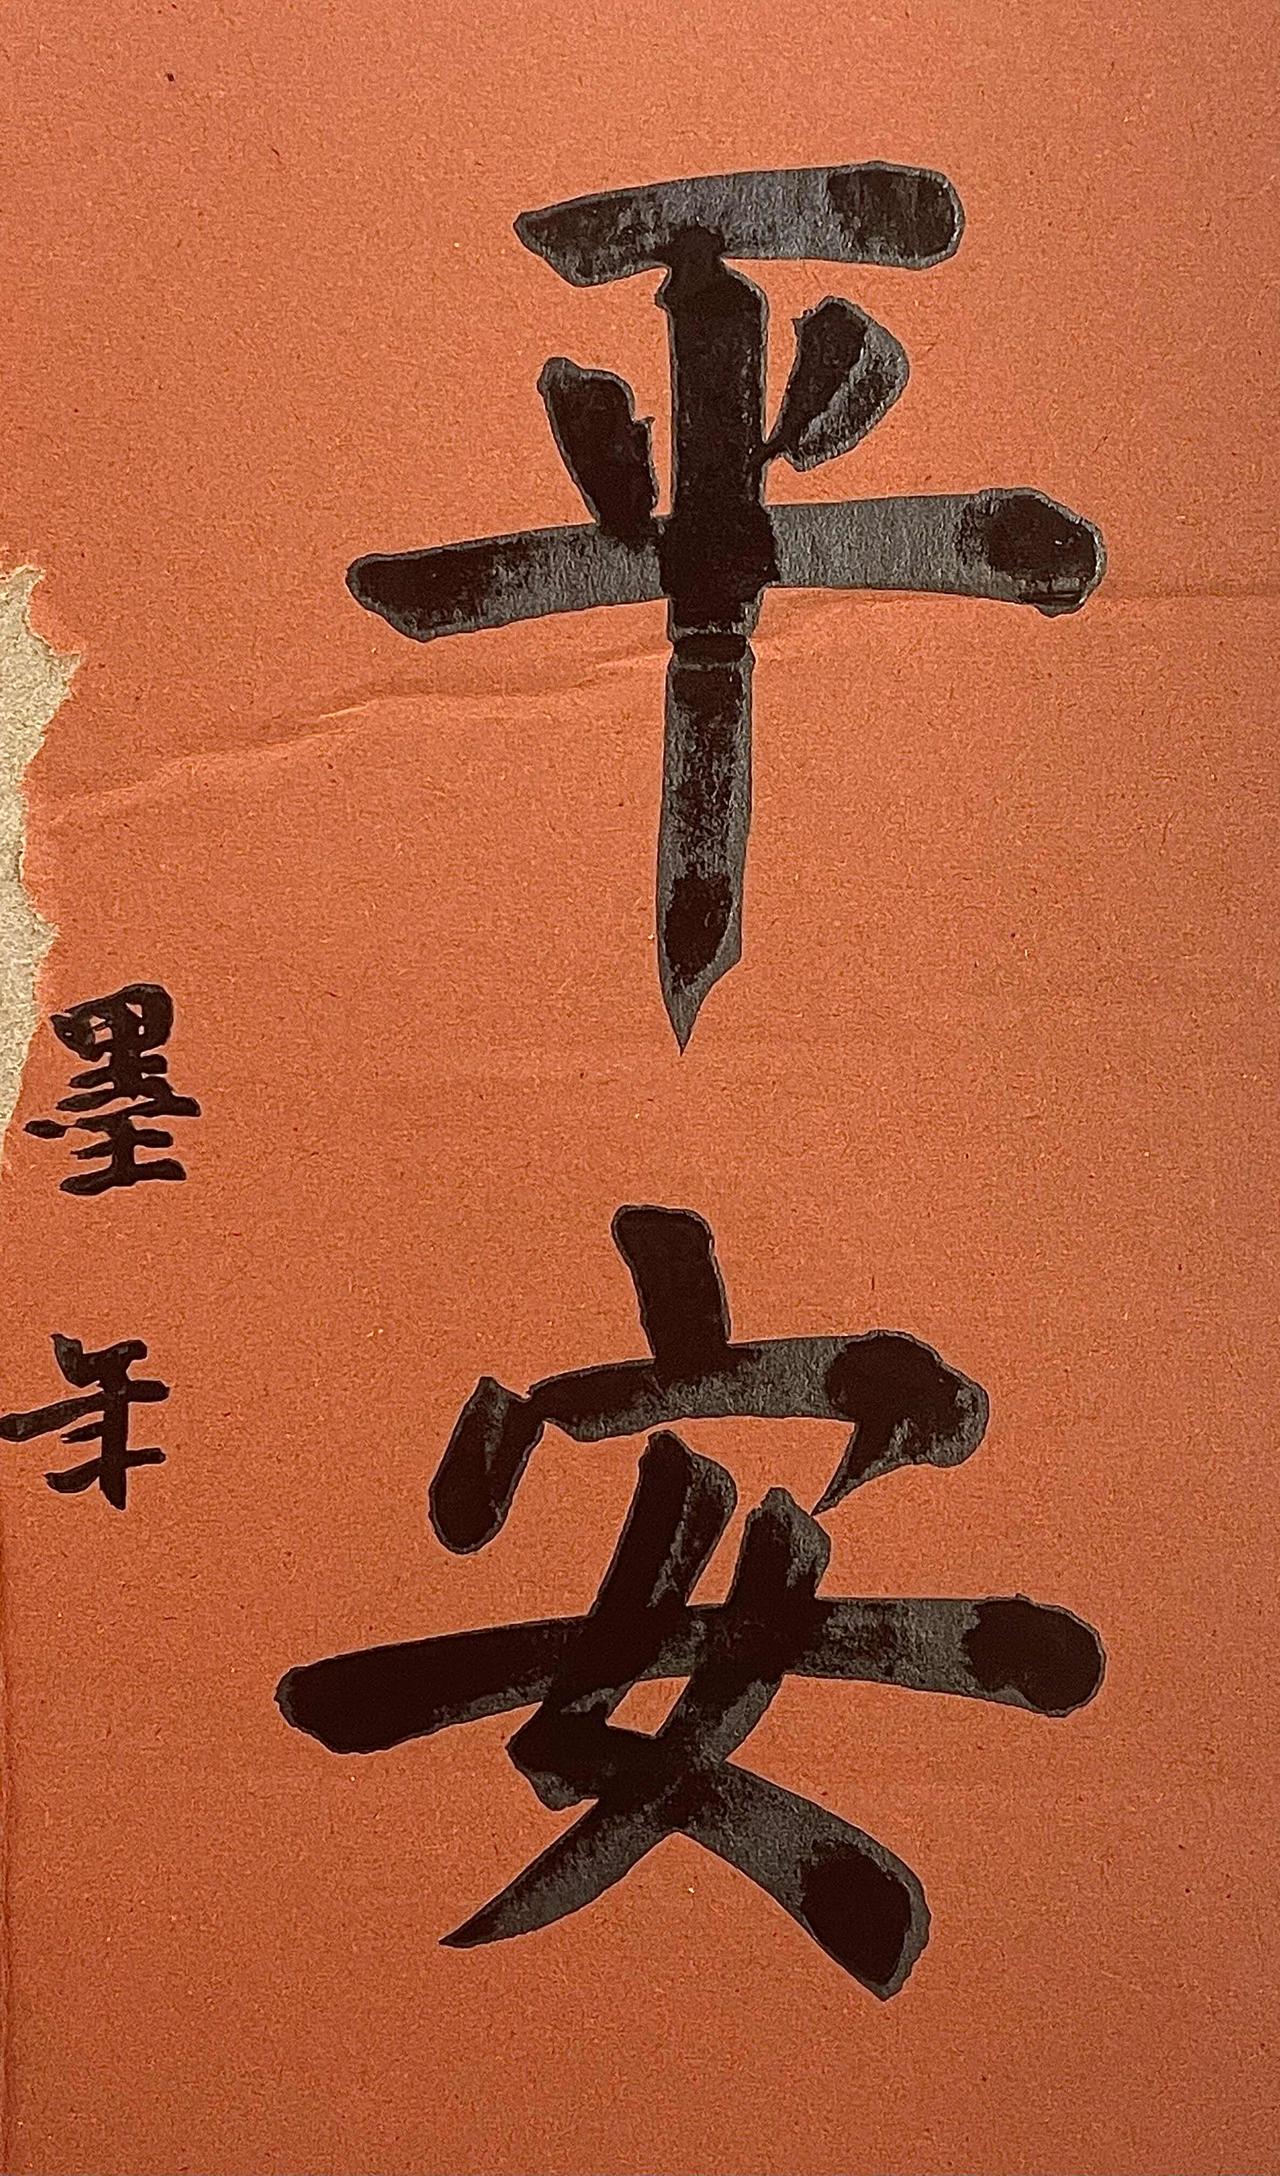 平安
墨年